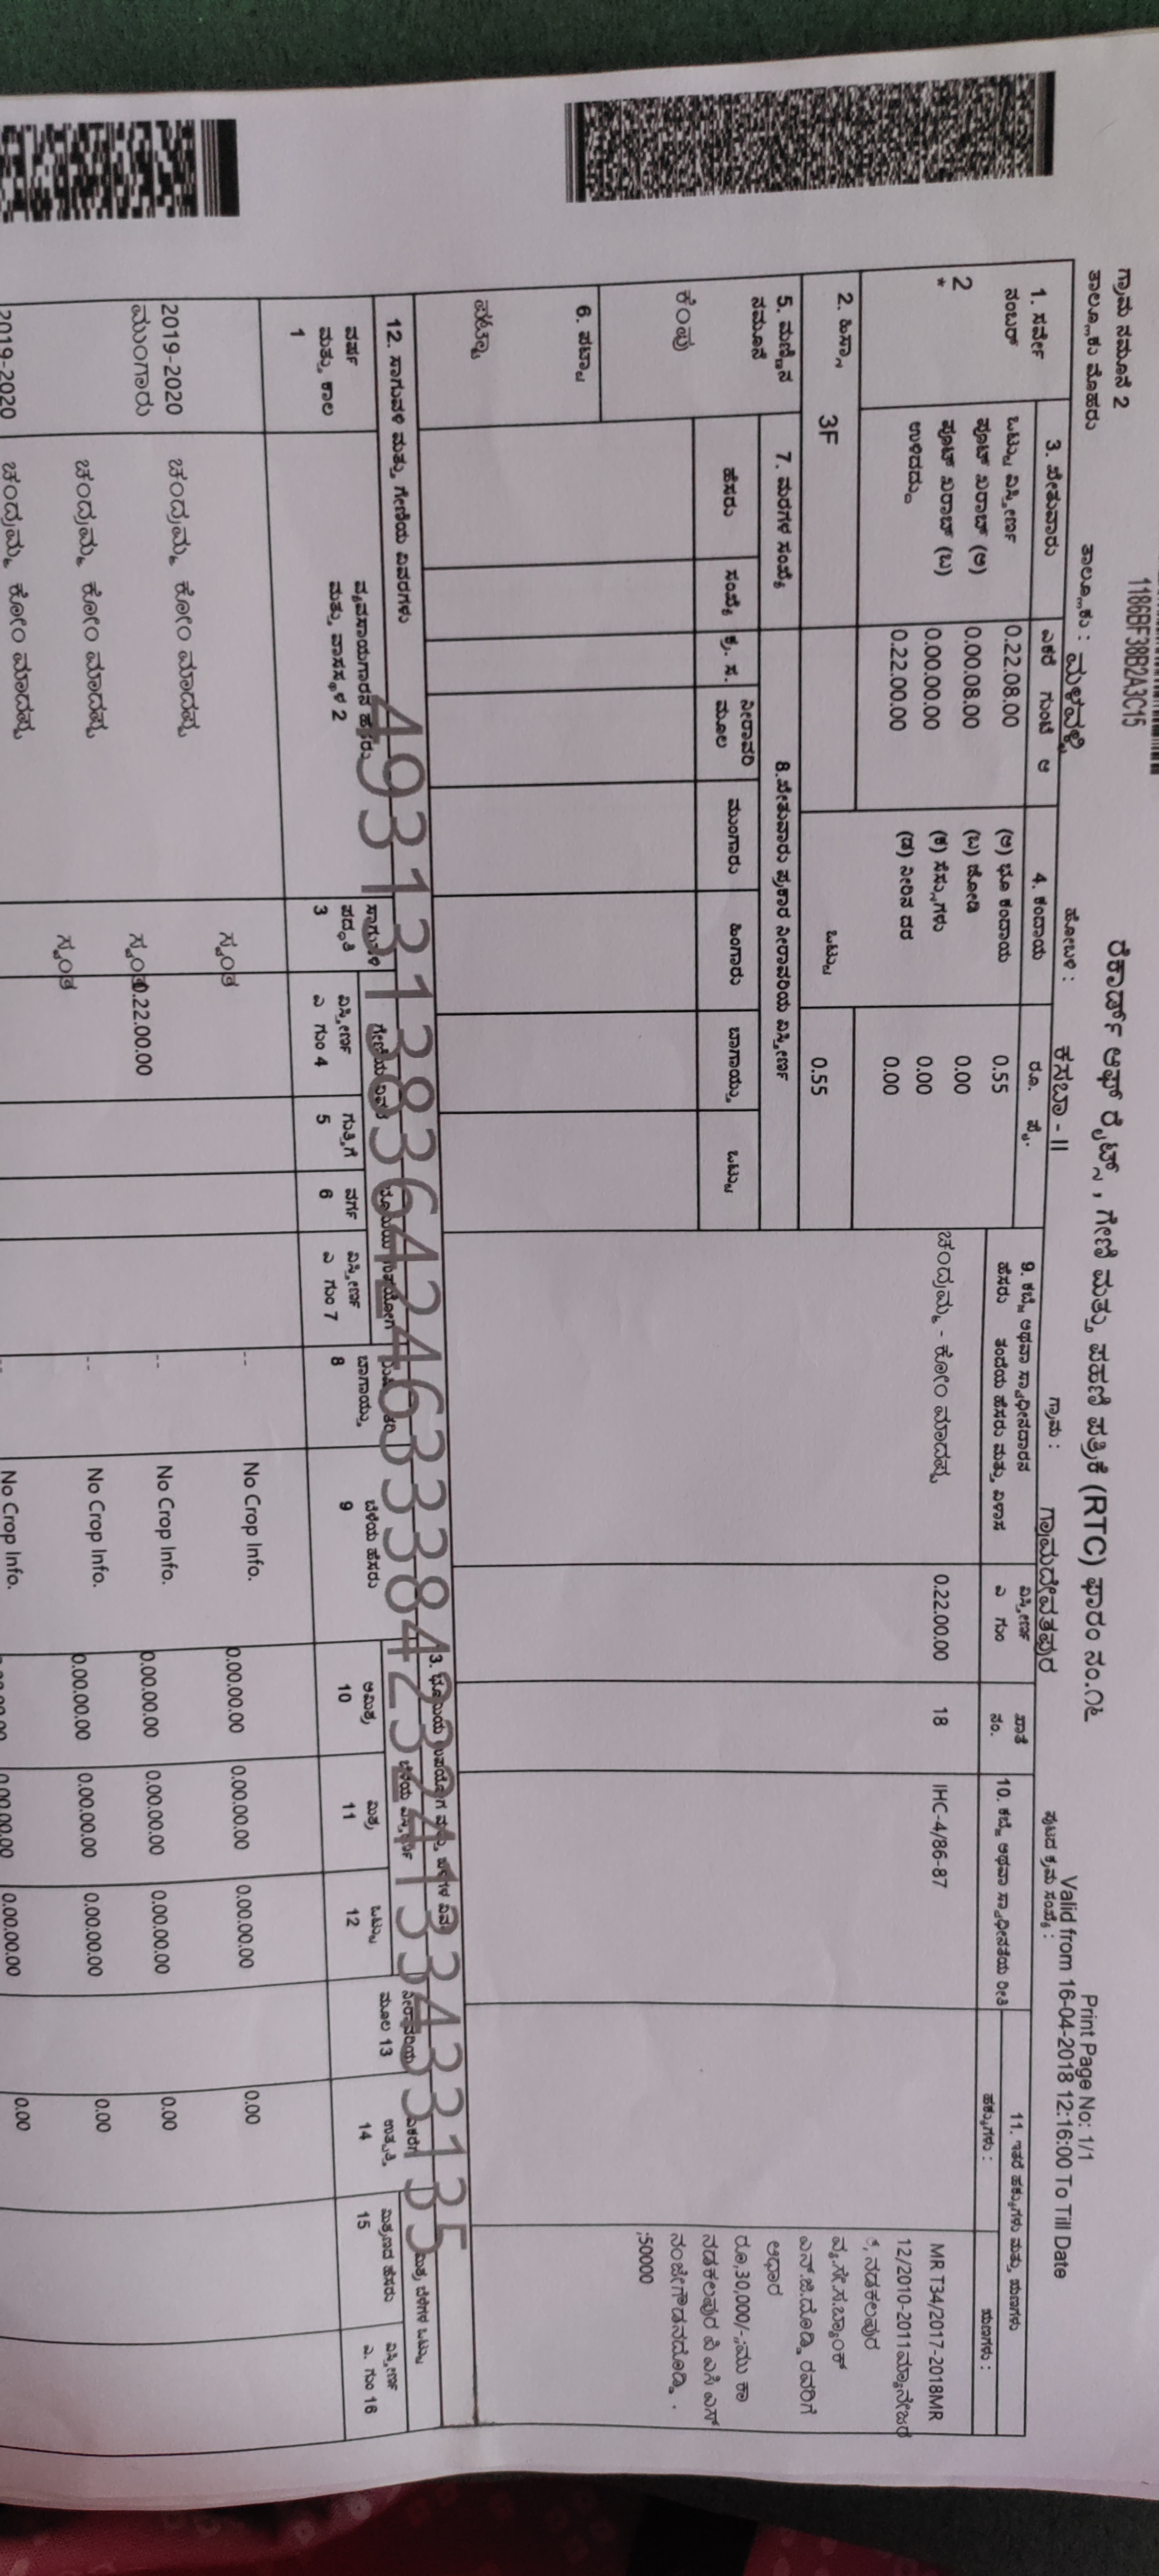 1186BF38B2A3C15
ಗ್ರಾಮ ನಮೂನೆ 2
ರೆಕಾರ್ಡ್ ಆಫ್ ರೈಟ್ಸ್, ಗೇಣಿ ಮತ್ತು ಪಹಣಿ ಪತ್ರಿಕೆ (RTC) ಫಾರಂ ನಂ.೧೬
Print Page No: 1/1
Valid from 16-04-2018 12:16:00 To Till Date
ತಾಲ್ಲೂಕು ಮೊಹರು
ತಾಲ್ಲೂಕು : ಮಳವಳ್ಳಿ
ಹೋಬಳಿ : ಕಸಬಾ - II
ಗ್ರಾಮ : ಗ್ರಾಮದೇವತಪುರ
ಪುಟದ ಕ್ರಮ ಸಂಖ್ಯೆ :
1. ಸರ್ವೇ ನಂಬರ್
2
*
3. ವೇತುವಾರು ಎಕರೆ ಗುಂಟೆ ಆ
ಒಟ್ಟು ವಿಸ್ತೀರ್ಣ 0.22.08.00
ಪೂಟ್ ಖರಾಬ್ (ಅ) 0.00.08.00
ಪೂಟ್ ಖರಾಬ್ (ಬ) 0.00.00.00
ಉಳಿದದ್ದು 0.22.00.00
4. ಕಂದಾಯ ರೂ. ಪೈ.
(ಅ) ಭೂ ಕಂದಾಯ 0.55
(ಬ) ಜೋಡಿ 0.00
(ಕ) ಸೆಸ್ಸುಗಳು 0.00
(ಡ) ನೀರಿನ ದರ 0.00
2. ಹಿಸ್ಸಾ 3F
ಒಟ್ಟು 0.55
9. ಕಬ್ಜೆ ಅಥವಾ ಸ್ವಾಧೀನದಾರನ
ಹೆಸರು ತಂದೆಯ ಹೆಸರು ಮತ್ತು ವಿಳಾಸ
ವಿಸ್ತೀರ್ಣ
ಎ ಗುಂ
ಖಾತೆ
ನಂ.
10. ಕಬ್ಜೆ ಅಥವಾ ಸ್ವಾಧೀನತೆಯ ರೀತಿ
11. ಇತರೆ ಹಕ್ಕುಗಳು ಮತ್ತು ಋಣಗಳು
ಹಕ್ಕುಗಳು :
ಋಣಗಳು :
ಚಂದ್ರಮ್ಮ - ಕೋಂ ಮಾದಪ್ಪ 0.22.00.00 18 IHC-4/86-87
MR T34/2017-2018MR
12/2010-2011ಮ್ಯಾನೇಜರ್
ಕೆ,ನಡಕಲಪುರ
ವ್ಯ.ಸೇ.ಸ.ಬ್ಯಾಂಕ್
ಎನ್.ಬಿ.ದೊಡ್ಡಿ ರವರಿಗೆ
ಆಧಾರ
ರೂ,30,000/-;ಮು ಕಾ
ನಡಕಲಪುರ ಪಿ ಎಸಿ ಎಸ್
ನಂಜೇಗೌಡನದೊಡ್ಡಿ .
;50000
5. ಮಣ್ಣಿನ
ನಮೂನೆ
ಕೆಂಪು
6. ಪಟ್ಟಾ
ಪಟ್ಟಾ
7. ಮರಗಳ ಸಂಖ್ಯೆ
ಹೆಸರು ಸಂಖ್ಯೆ
8.ವೇತುವಾರು ಪ್ರಕಾರ ನೀರಾವರಿಯ ವಿಸ್ತೀರ್ಣ
ಕ್ರ. ಸ. ನೀರಾವರಿ ಮೂಲ ಮುಂಗಾರು ಹಿಂಗಾರು ಬಾಗಾಯ್ತು ಒಟ್ಟು
12. ಸಾಗುವಳಿ ಮತ್ತು ಗೇಣಿಯ ವಿವರಗಳು
ವರ್ಷ
ಮತ್ತು ಕಾಲ
1
ವ್ಯವಸಾಯಗಾರನ ಹೆಸರು
ಮತ್ತು ವಾಸಸ್ಥಳ 2
ಸಾಗುವಳಿ
ಪದ್ಧತಿ
3
ವಿಸ್ತೀರ್ಣ
ಎ ಗುಂ 4
ಗುತ್ತಿಗೆ
5
ವರ್ಗ
6
ವಿಸ್ತೀರ್ಣ
ಎ ಗುಂ 7
ಬಾಗಾಯ್ತು
8
ಬೆಳೆಯ ಹೆಸರು
9
ಅಮಿಶ್ರ
10
ಮಿಶ್ರ
11
ಒಟ್ಟು
12
ನೀರಾವರಿಯ
ಮೂಲ 13
ಉತ್ಪತ್ತಿ
14
ಮಿಶ್ರಣದ ಹೆಸರು
15
ವಿಸ್ತೀರ್ಣ
ಎ. ಗುಂ 16
ಸ್ವಂತ -- No Crop Info. 0.00.00.00 0.00.00.00 0.00.00.00 0.00
2019-2020 ಚಂದ್ರಮ್ಮ ಕೋಂ ಮಾದಪ್ಪ
ಮುಂಗಾರು ಸ್ವಂತ 0.22.00.00 -- No Crop Info. 0.00.00.00 0.00.00.00 0.00.00.00 0.00
ಚಂದ್ರಮ್ಮ ಕೋಂ ಮಾದಪ್ಪ ಸ್ವಂತ -- No Crop Info. 0.00.00.00 0.00.00.00 0.00.00.00 0.00
2019-2020 ಚಂದ್ರಮ್ಮ ಕೋಂ ಮಾದಪ್ಪ No Crop Info. 0.00.00.00 0.00.00.00 0.00